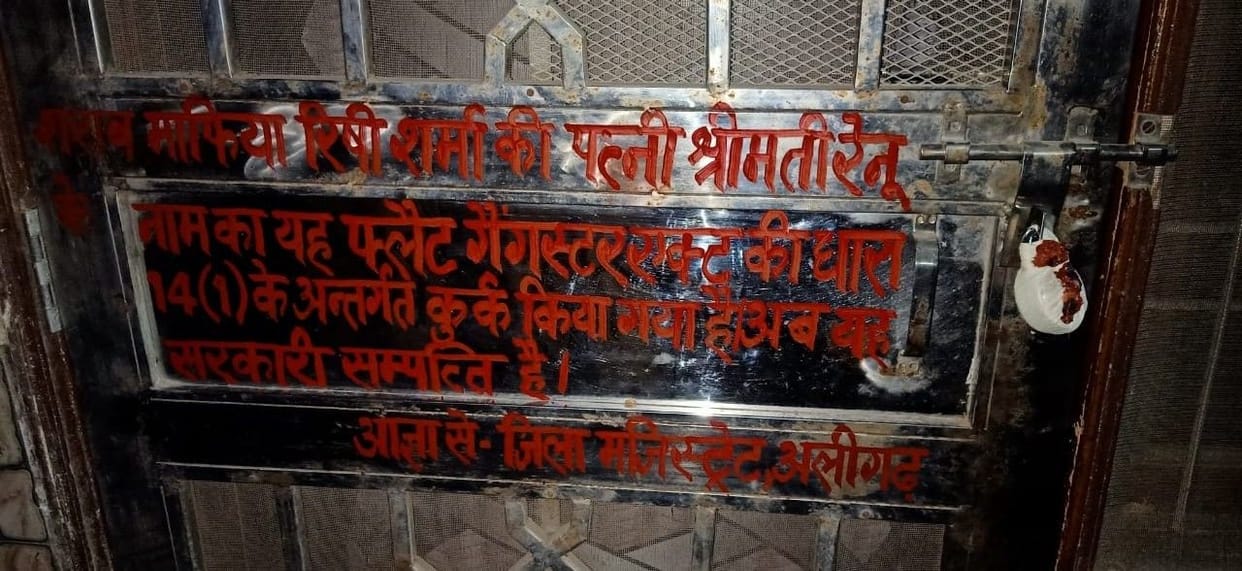 शराब माफिया रिषी शर्मा की पत्नी श्रीमती रेनू
के
नाम का यह फ्लैट गैंगस्टर एक्ट की धारा
14(1) के अन्तर्गत कुर्क किया गया है। अब यह
सरकारी सम्पत्ति है।
आज्ञा से- जिला मजिस्ट्रेट, अलीगढ़